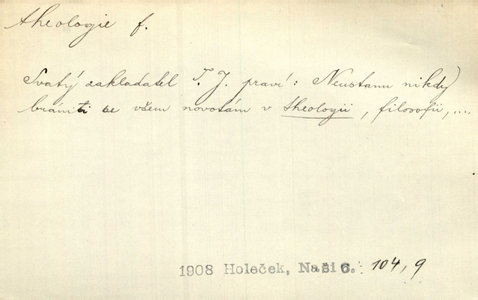 theologie f.
Svatý zakladatel T. J. praví: Neustanu nikdy
brániti se všem novotám v theologii, filosofii, ...
1908 Holeček, Naši 6. 104, 9